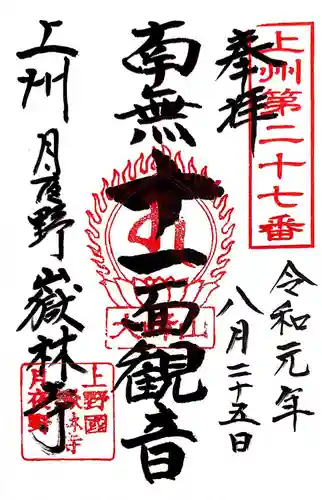 上州第二十七番
奉拝
令和元年
八月二十五日
南無十一面観音
大峰山
上州月夜野嶽林寺
上野國
嶽林寺
月夜野